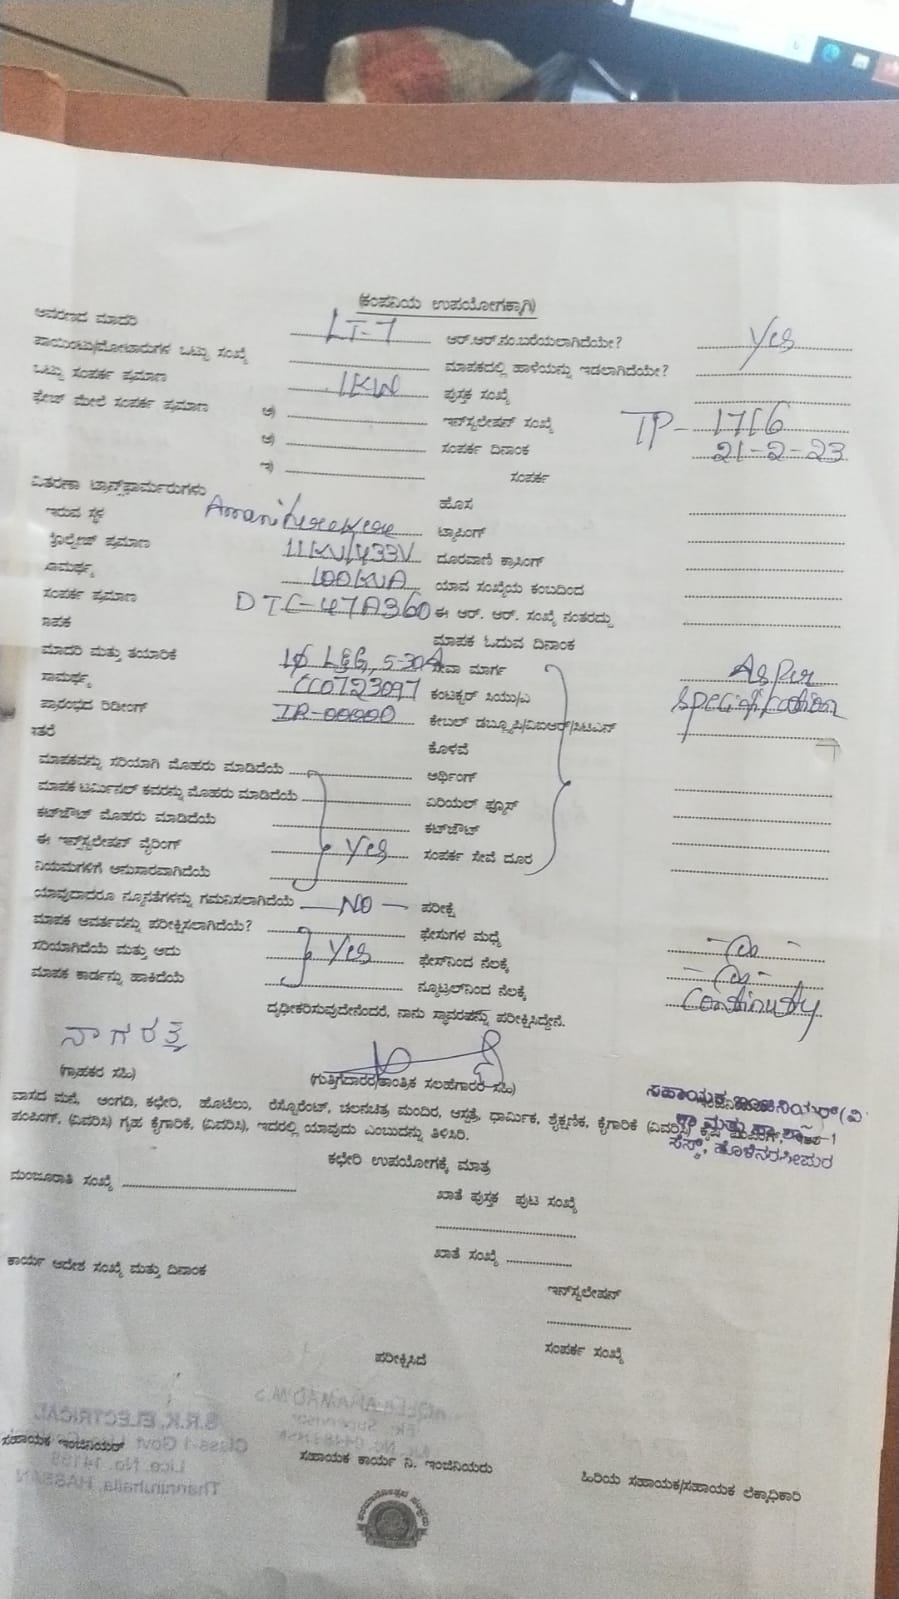 (ಕಂಪನಿಯ ಉಪಯೋಗಕ್ಕಾಗಿ)
ಆವರಣದ ಮಾದರಿ LT-7 ಆರ್.ಆರ್.ನಂ.ಬರೆಯಲಾಗಿದೆಯೇ? Yes
ಪಾಯಿಂಟು/ಮೋಟಾರುಗಳ ಒಟ್ಟು ಸಂಖ್ಯೆ ಮಾಪಕದಲ್ಲಿ ಹಾಳೆಯನ್ನು ಇಡಲಾಗಿದೆಯೇ?
ಒಟ್ಟು ಸಂಪರ್ಕ ಪ್ರಮಾಣ 1KW ಪುಸ್ತಕ ಸಂಖ್ಯೆ
ಫೇಜ್ ಮೇಲೆ ಸಂಪರ್ಕ ಪ್ರಮಾಣ ಅ) ಇನ್‌ಸ್ಟಲೇಷನ್ ಸಂಖ್ಯೆ TP-1716
ಆ) ಸಂಪರ್ಕ ದಿನಾಂಕ 21-2-23
ಇ) ಸಂಪರ್ಕ
ವಿತರಣಾ ಟ್ರಾನ್ಸ್‌ಫಾರ್ಮರುಗಳು ಹೊಸ
ಇರುವ ಸ್ಥಳ ಟ್ಯಾಪಿಂಗ್
ವೋಲ್ಟೇಜ್ ಪ್ರಮಾಣ 11KV/433V ದೂರವಾಣಿ ಕ್ರಾಸಿಂಗ್
ಸಾಮರ್ಥ್ಯ 100KVA ಯಾವ ಸಂಖ್ಯೆಯ ಕಂಬದಿಂದ
ಸಂಪರ್ಕ ಪ್ರಮಾಣ DTC-47A360 ಈ ಆರ್. ಆರ್. ಸಂಖ್ಯೆ ನಂತರದ್ದು
ಾಪಕ ಮಾಪಕ ಓದುವ ದಿನಾಂಕ
ಮಾದರಿ ಮತ್ತು ತಯಾರಿಕೆ 1φ L&G, 5-30A ಸೇವಾ ಮಾರ್ಗ As per
ಸಾಮರ್ಥ್ಯ CC0723097 ಕಂಟಕ್ಟರ್ ಸಿಯು/ಎ specification
ಪ್ರಾರಂಭದ ರಿಡೀಂಗ್ IR-00000 ಕೇಬಲ್ ಡಬ್ಲ್ಯೂಪಿ/ವಿಐಆರ್/ಸಿಟಿಎಸ್
ಇತರೆ ಕೊಳವೆ
ಮಾಪಕವನ್ನು ಸರಿಯಾಗಿ ಮೊಹರು ಮಾಡಿದೆಯೆ ಅರ್ಥಿಂಗ್
ಮಾಪಕ ಟರ್ಮಿನಲ್ ಕವರನ್ನು ಮೊಹರು ಮಾಡಿದೆಯೆ ಏರಿಯಲ್ ಫ್ಯೂಸ್
ಕಟ್‌ಔಟ್ ಮೊಹರು ಮಾಡಿದೆಯೆ ಕಟ್‌ಔಟ್
ಈ ಇನ್‌ಸ್ಟಲೇಷನ್ ವೈರಿಂಗ್ Yes ಸಂಪರ್ಕ ಸೇವೆ ದೂರ
ನಿಯಮಗಳಿಗೆ ಅನುಸಾರವಾಗಿದೆಯೆ
ಯಾವುದಾದರೂ ನ್ಯೂನತೆಗಳನ್ನು ಗಮನಿಸಲಾಗಿದೆಯೆ — NO — ಪರೀಕ್ಷೆ
ಮಾಪಕ ಆವರ್ತವನ್ನು ಪರೀಕ್ಷಿಸಲಾಗಿದೆಯೆ? ಫೇಸುಗಳ ಮಧ್ಯೆ
ಸರಿಯಾಗಿದೆಯೆ ಮತ್ತು ಅದು Yes ಫೇಸ್‌ನಿಂದ ನೆಲಕ್ಕೆ
ಮಾಪಕ ಕಾರ್ಡನ್ನು ಹಾಕಿದೆಯೆ ನ್ಯೂಟ್ರಲ್‌ನಿಂದ ನೆಲಕ್ಕೆ Continuty
ದೃಢೀಕರಿಸುವುದೇನೆಂದರೆ, ನಾನು ಸ್ಥಾವರವನ್ನು ಪರೀಕ್ಷಿಸಿದ್ದೇನೆ.
ನಾಗರತ್ನ
(ಗ್ರಾಹಕರ ಸಹಿ) (ಗುತ್ತಿಗೆದಾರರ/ತಾಂತ್ರಿಕ ಸಲಹೆಗಾರರ ಸಹಿ)
ಸಹಾಯಕ ಇಂಜಿನಿಯರ್ (ವಿ
ಕಾ ಮತ್ತು ಪಾ ಶಾಖೆ-1
ಸೆಸ್ಕ್, ಹೊಳೆನರಸೀಪುರ
ವಾಸದ ಮನೆ, ಅಂಗಡಿ, ಕಛೇರಿ, ಹೊಟೆಲು, ರೆಸ್ಟೊರೆಂಟ್, ಚಲನಚಿತ್ರ ಮಂದಿರ, ಆಸ್ಪತ್ರೆ, ಧಾರ್ಮಿಕ, ಶೈಕ್ಷಣಿಕ, ಕೈಗಾರಿಕೆ (ವಿವರಿಸಿ) ಕೃಷಿ ಪಂಪಿಂಗ್, ಇತರೆ
ಪಂಪಿಂಗ್, (ವಿವರಿಸಿ) ಗೃಹ ಕೈಗಾರಿಕೆ, (ವಿವರಿಸಿ), ಇದರಲ್ಲಿ ಯಾವುದು ಎಂಬುದನ್ನು ತಿಳಿಸಿರಿ.
ಕಛೇರಿ ಉಪಯೋಗಕ್ಕೆ ಮಾತ್ರ
ಮಂಜೂರಾತಿ ಸಂಖ್ಯೆ ಖಾತೆ ಪುಸ್ತಕ ಪುಟ ಸಂಖ್ಯೆ
ಖಾತೆ ಸಂಖ್ಯೆ
ಕಾರ್ಯ ಆದೇಶ ಸಂಖ್ಯೆ ಮತ್ತು ದಿನಾಂಕ
ಇನ್‌ಸ್ಟಲೇಷನ್
ಸಂಪರ್ಕ ಸಂಖ್ಯೆ
ಪರೀಕ್ಷಿಸಿದೆ
S.R.K. ELECTRICAL
Lice. No. 14158
HASSAN
ಸಹಾಯಕ ಇಂಜಿನಿಯರ್ ಸಹಾಯಕ ಕಾರ್ಯ ನಿ. ಇಂಜಿನಿಯರು ಹಿರಿಯ ಸಹಾಯಕ/ಸಹಾಯಕ ಲೆಕ್ಕಾಧಿಕಾರಿ